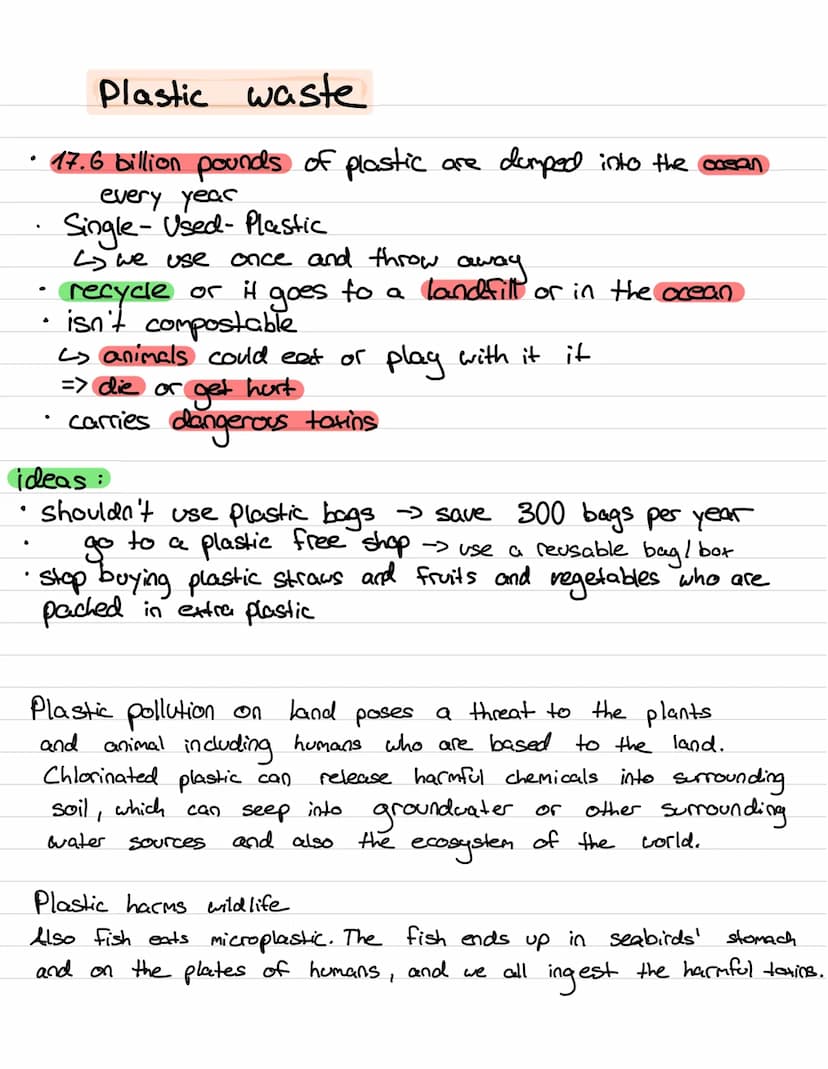 Plastic waste
· 17.6 billion pounds of plastic are dumped into the ocean
every year
· Single-Used-Plastic
↳ we use once and throw away
· recycle or it goes to a landfill or in the ocean
· isn't compostable
↳ animals could eat or play with it it
=> die or get hurt
· carries dangerous toxins
ideas:
· shouldn't use plastic bags → save 300 bags per year
· go to a plastic free shop → use a reusable bag/box
· stop buying plastic straws and fruits and vegetables who are
packed in extra plastic
Plastic pollution on land poses a threat to the plants
and animal including humans who are based to the land.
Chlorinated plastic can release harmful chemicals into surrounding
soil, which can seep into groundwater or other surrounding
water sources and also the ecosystem of the world.
Plastic harms wildlife
Also fish eats microplastic. The fish ends up in seabirds' stomach
and on the plates of humans, and we all ingest the harmful toxins.